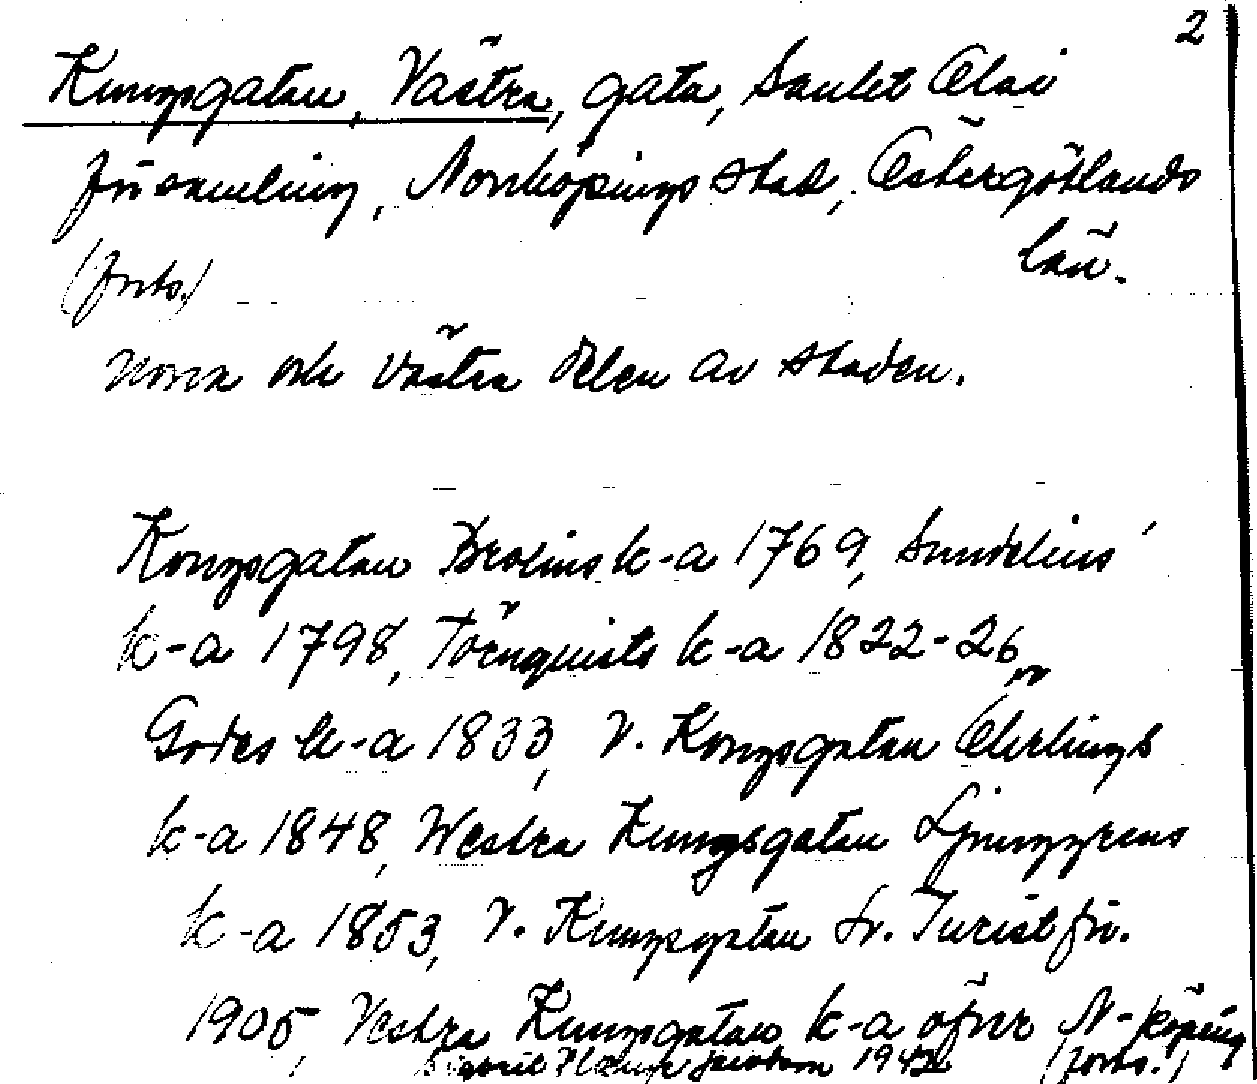 2
Kungsgatan, Västra, gata, Sankt Olai
församling, Norrköpings stad, Östergötlands
län.
(forts.)
norra och västra delen av staden.
Kongsgatan Brolins k-a 1769, Sundelius'
k-a 1798, Törnquists k-a 1822-26,
Godes k-a 1833, V. Kongsgatan Öhrlings
k-a 1848, Westra Kungsgatan Ljunggrens
k-a 1853, V. Kungsgatan Sv. Turistför.
1905, Vestra Kungsgatan k-a öfver N-köping
1942 (forts.)